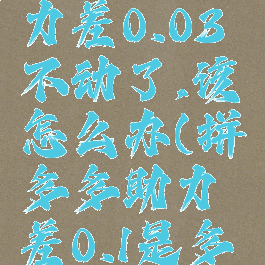 力差0.03
不动了,该
怎么办(拼
多多助力
差0.1是多